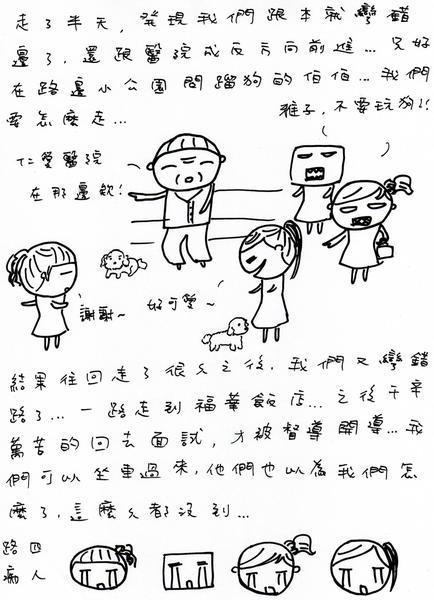 走了半天，發現我們跟本就彎錯
邊了，還跟醫院成反方向前進…只好
在路邊小公園問蹓狗的伯伯…我們
要怎麼走…
雅子，不要玩狗!!
仁愛醫院
在那邊欸!
謝謝~
好可愛~
結果往回走了很久之後，我們又彎錯
路了…一路走到福華飯店…之後千辛
萬苦的回去面試，才被督導開導…我
們可以坐車過來，他們也以為我們怎
麼了，這麼久都沒到…
路四
痴人